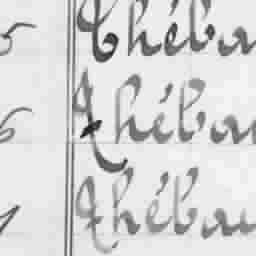 5 Théba
6 Thébau
Thébau